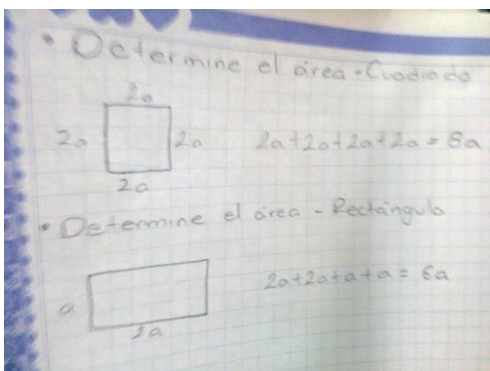 • Determine el área - Cuadrado
2a
2a 2a 2a+2a+2a+2a = 8a
2a
• Determine el área - Rectángulo
2a+2a+a+a = 6a
a
2a